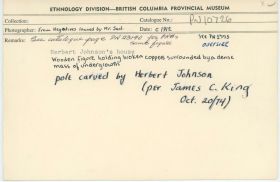 ETHNOLOGY DIVISION—BRITISH COLUMBIA PROVINCIAL MUSEUM
Collection Catalogue No. PN 10726
Photographer: From Negatives loaned by Mr. c 1912
Remarks: See catalogue page PN 23140 for SEE PN 5793
same OVERSIZE
Herbert Johnson's house
Wooden figure holding broken coppers surrounded by a dense
mass of undergrowth
pole carved by Herbert Johnson
(per James C. King
Oct. 20/74)